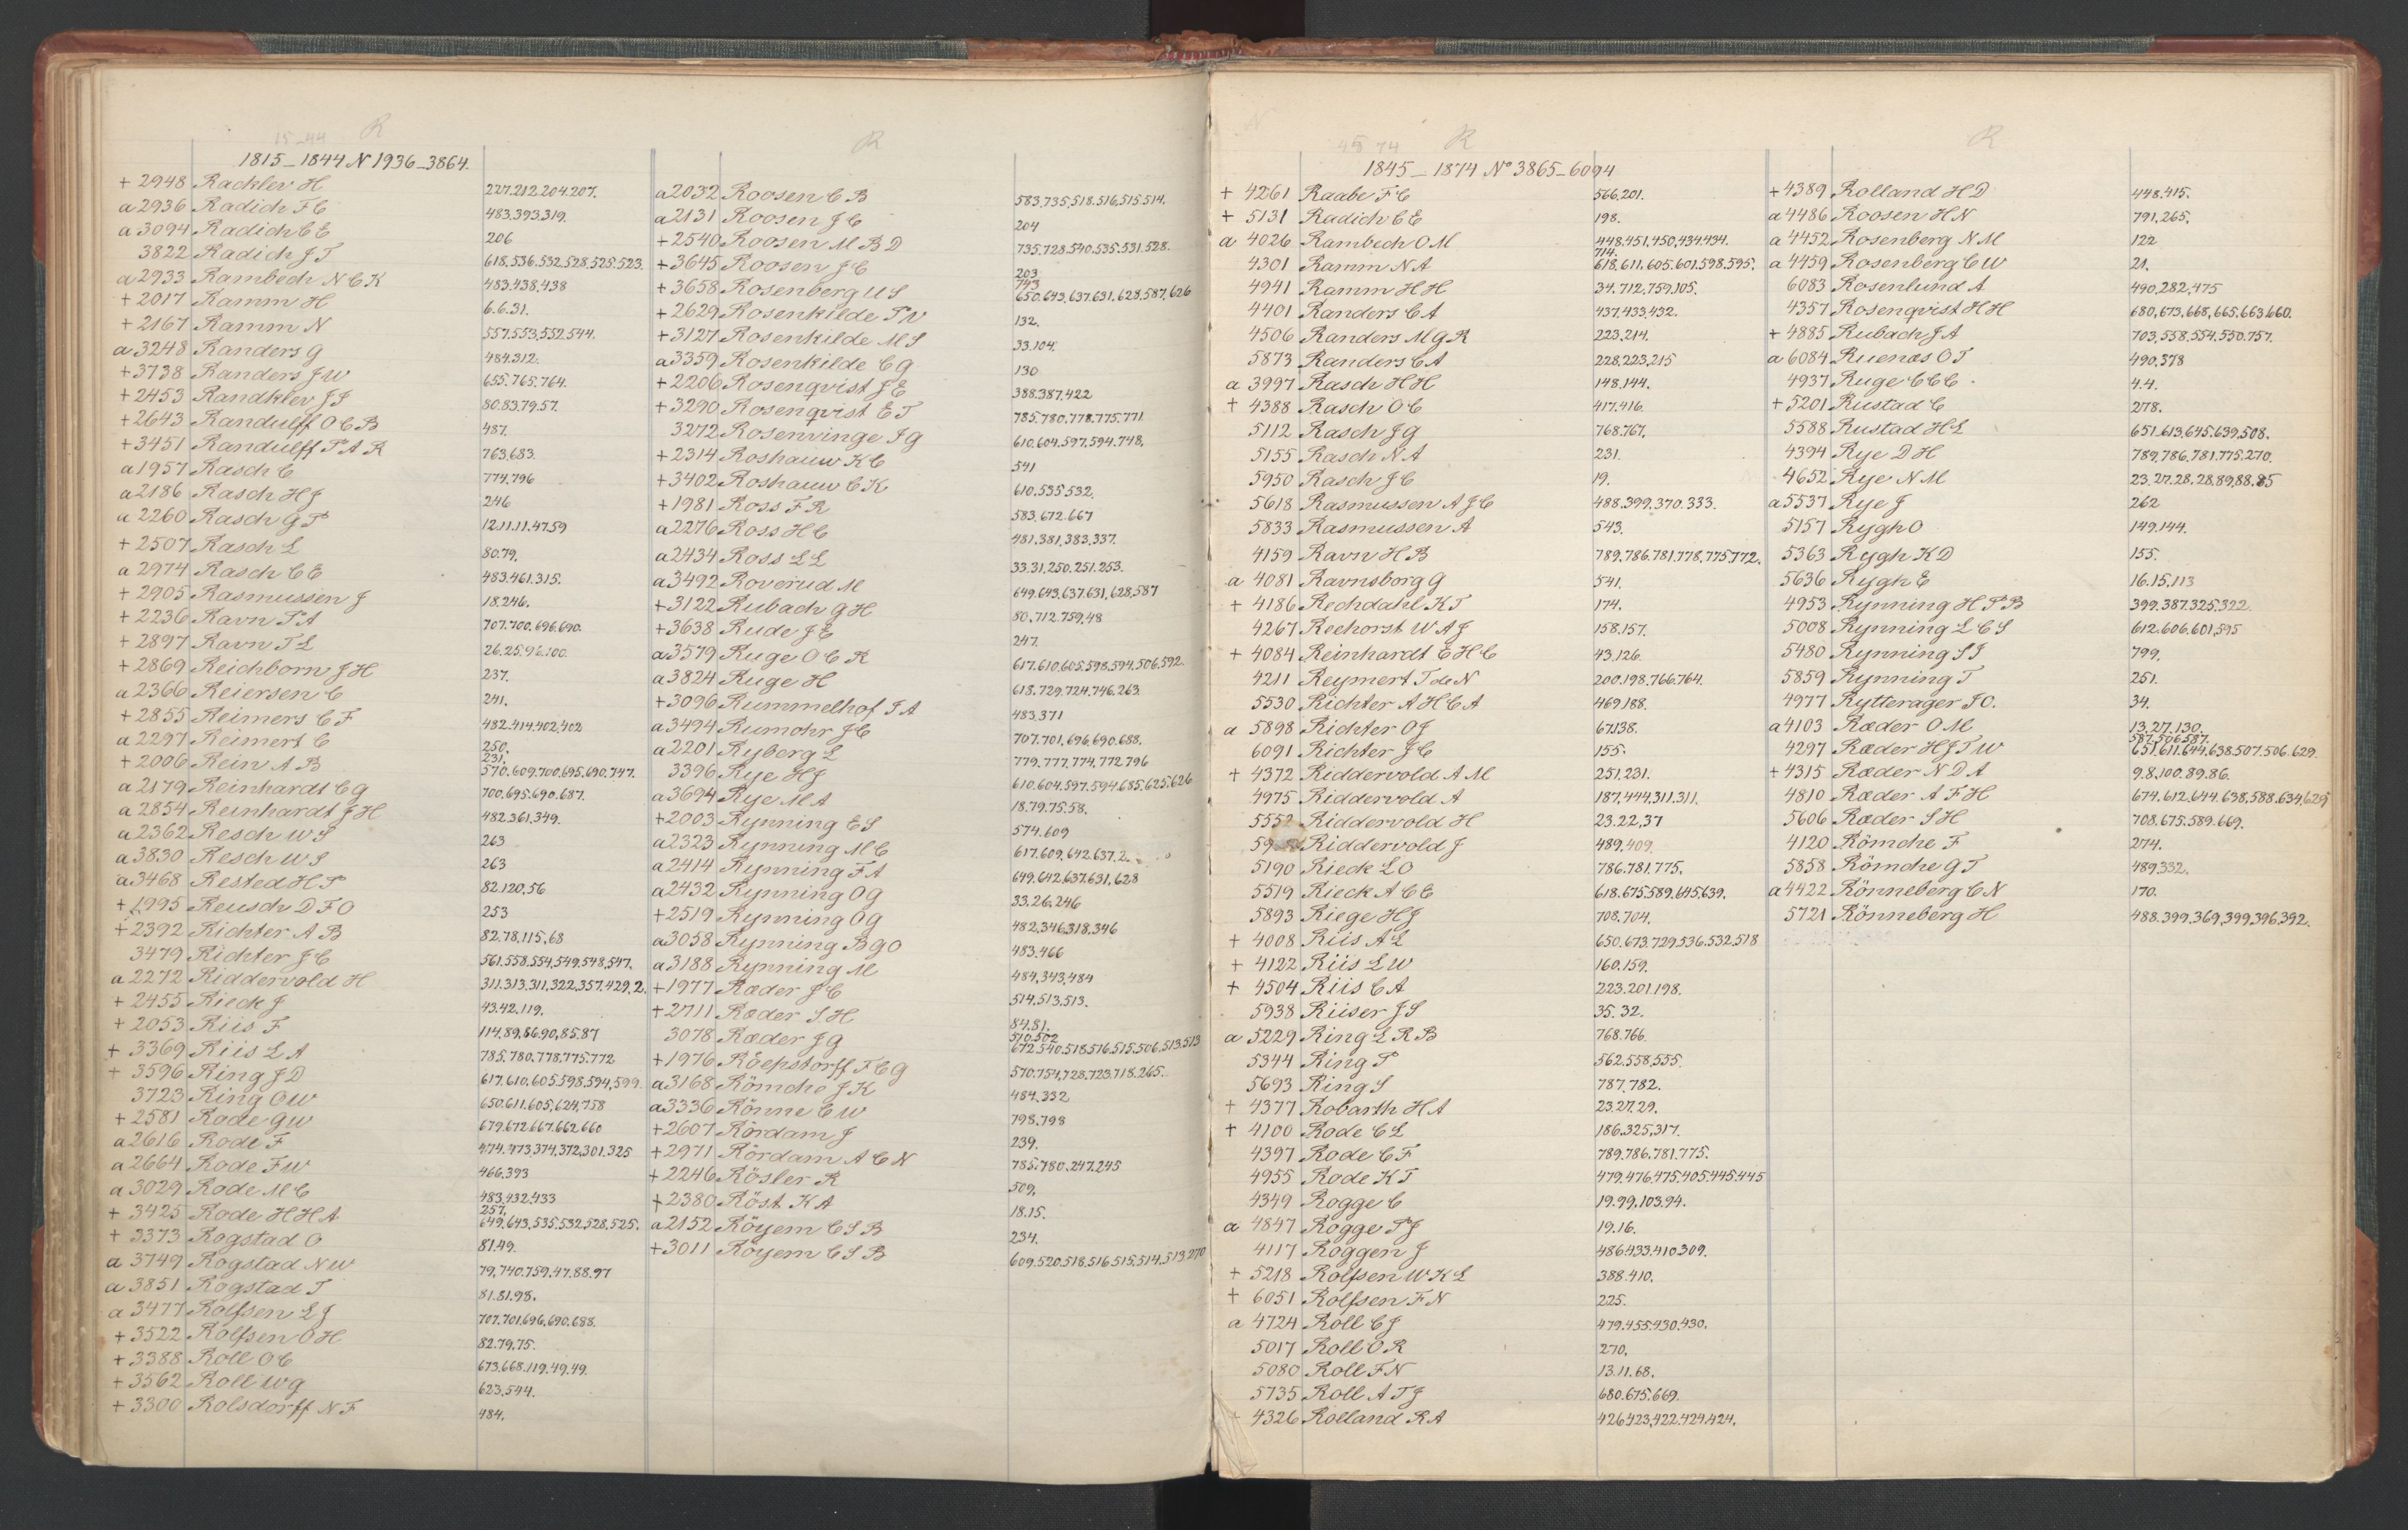 R
15_44
1815_1844 N 1936_3864.
+ 2948 Racklev H 227.212.204.207.
a 2936 Radich F C 483.393.319.
a 3094 Radich C E 206
3822 Radich J T 618.536.532.528.525.523.
a 2933 Rambech N C K 483.438.438
+ 2017 Ramm H 6.6.31.
+ 2167 Ramm N 557.553.552.544.
a 3248 Randers G 484.312.
+ 3738 Randers J W 655.765.764.
+ 2453 Randklev J J 80.83.79.57.
+ 2643 Randulff O C B 487.
+ 3451 Randulff P A R 763.683.
a 1957 Rasch C 774.796
a 2186 Rasch H J 246
a 2260 Rasch G P 12.11.11.47.59
+ 2507 Rasch L 80.79.
a 2974 Rasch C E 483.461.315.
+ 2905 Rasmussen J 18.246.
+ 2236 Ravn P A 707.700.696.690.
+ 2897 Ravn T L 26.25.96.100.
+ 2869 Reichborn J H 237.
a 2366 Reiersen C 241.
+ 2855 Reimers C F 482.414.402.402
a 2297 Reimert C 250.
231.
+ 2006 Rein A B 570.609.700.695.690.747.
a 2179 Reinhardt C G 700.695.690.687.
a 2854 Reinhardt J H 482.361.349.
a 2362 Resch W S 263
a 3830 Resch W S 263
a 3468 Rested H P 82.120.56
+ 1995 Reusch D F O 253
+ 2392 Richter A B 82.78.115.68
3479 Richter J C 561.558.554.549.548.547.
a 2272 Riddervold H 311.313.311.322.357.429.2.
+ 2455 Rieck J 43.42.119.
+ 2053 Riis F 114.89.86.90.85.87
+ 3369 Riis L A 785.780.778.775.772
+ 3596 Ring J D 617.610.605.598.594.599.
3723 Ring O W 650.611.605.624.758
+ 2581 Rode G W 679.672.667.662.660
a 2616 Rode F 474.473.374.372.301.325
a 2664 Rode F W 466.393
a 3029 Rode M C 483.432.433
257.
+ 3425 Rode H H A 649.643.535.532.528.525.
+ 3373 Rogstad O 81.49.
a 3749 Rogstad N W 79.740.759.47.88.97
a 3851 Rogstad T 81.81.98.
a 3477 Rolfsen L J 707.701.696.690.688.
+ 3522 Rolfsen O H 82.79.75.
+ 3388 Roll O C 673.668.119.49.49.
+ 3562 Roll W G 623.544.
+ 3300 Rolsdorff N F 484.
R
a 2032 Roosen C B 583.735.518.516.515.514.
a 2131 Roosen J C 204
+ 2540 Roosen M B D 735.728.540.535.531.528.
+ 3645 Roosen J C 203
743
+ 3658 Rosenberg U S 650.643.637.631.628.587.626
+ 2629 Rosenkilde P V 132.
+ 3127 Rosenkilde M S 33.104.
a 3359 Rosenkilde C G 130
+ 2206 Rosenqvist J E 388.387.422
+ 3290 Rosenqvist E T 785.780.778.775.771
3272 Rosenvinge J G 610.604.597.594.748.
+ 2314 Roshauw K C 541
+ 3402 Roshauw C K 610.535.532.
+ 1981 Ross F R 583.672.667
a 2276 Ross H C 481.381.383.337.
a 2434 Ross L L 33.31.250.251.253.
a 3492 Roverud M 649.643.637.631.628.587
+ 3122 Rubach G H 80.712.759.48
+ 3638 Rude J E 247.
a 3579 Ruge O C R 617.610.605.598.594.506.592.
a 3824 Ruge H 618.729.724.746.263.
+ 3096 Rummelhof J A 483.371
a 3494 Rumohr J C 707.701.696.690.688.
a 2201 Ryberg L 779.777.774.772.796
3396 Rye H J 610.604.597.594.685.625.626
a 3694 Rye M A 18.79.75.58.
+ 2003 Rynning E S 574.609
a 2323 Rynning M C 617.609.642.637.2.
a 2414 Rynning F A 649.642.637.631.628
a 2432 Rynning O G 33.26.246
+ 2519 Rynning O G 482.346.318.346
a 3058 Rynning B G O 483.466
a 3188 Rynning M 484.343.484
+ 1977 Ræder J C 514.513.513.
+ 2711 Ræder S. H 84.81.
510.502
3078 Ræder J G 672.540.518.516.515.506.513.513
+ 1976 Röepstorff F C G 570.754.728.723.718.265.
a 3168 Römche J K 484.332
a 3336 Rönne C W 798.798
+ 2607 Rördam J 239.
+ 2971 Rördam A C N 785.780.247.245
+ 2246 Rösler R 509.
+ 2380 Röst K A 18.15.
a 2152 Röyem C S B 234.
+ 3011 Röyem C S B 609.520.518.516.515.514.513.270
45 74
R
1845_1874 No 3865_6094
+ 4261 Raabe F C 566.201.
+ 5131 Radich C E 198.
a 4026 Rambech O M 448.451.450.434.434.
714.
4301 Ramm N A 618.611.605.601.598.595.
4941 Ramm H H 34.712.759.105.
4401 Randers C A 437.433.432.
4506 Randers M G R 223.214.
5873 Randers C A 228.223.215
a 3997 Rasch H H 148.144.
+ 4388 Rasch O C 417.416.
5112 Rasch J G 768.767.
5155 Rasch N A 231.
5950 Rasch J C 19.
5618 Rasmussen A J C 488.399.370.333.
5833 Rasmussen A 543.
4159 Ravn H B 789.786.781.778.775.772.
a 4081 Ravnsborg G 541.
+ 4186 Rechdahl K T 174.
4267 Reehorst W A J 158.157.
+ 4084 Reinhardt E H C 43.126.
4211 Reymert T de N 200.198.766.764.
5530 Richter A H C A 469.188.
a 5898 Richter O J 67.138.
6091 Richter J C 155.
+ 4372 Riddervold A M 251.231.
4975 Riddervold A 187.444.311.311.
5552 Riddervold H 23.22.37
Riddervold J 489.409.
5190 Rieck L O 786.781.775.
5519 Rieck A C E 618.675.589.645.639.
5893 Riege H J 708.704.
+ 4008 Riis A L 650.673.729.536.532.518
+ 4122 Riis L W 160.159.
+ 4504 Riis C A 223.201.198.
5938 Riiser J S 35.32.
a 5229 Ring L R B 768.766.
5344 Ring P 562.558.555.
5693 Ring S 787.782.
+ 4377 Robarth H A 23.27.29.
+ 4100 Rode C L 186.325.317.
4397 Rode C F 789.786.781.775.
4955 Rode K T 479.476.475.405.445.445
4349 Rogge C 19.99.103.94.
a 4847 Rogge P J 19.16.
4117 Roggen J 486.433.410.309.
+ 5218 Rolfsen W K L 388.410.
+ 6051 Rolfsen F N 225.
a 4724 Roll C J 479.455.430.430.
5017 Roll O R 270.
5080 Roll F N 13.11.68.
5735 Roll A T J 680.675.669.
+ 4326 Rolland R A 426.423.422.424.424.
R
+ 4389 Rolland H D 448.415.
a 4486 Roosen H N 791.265.
a 4452 Rosenberg N M 122
a 4459 Rosenberg C W 21.
6083 Rosenlund A 490.282.475
4357 Rosenqvist H H 680.673.668.665.663.660.
+ 4885 Rubach J A 703.558.554.550.757.
a 6084 Ruenæs O T 490.378
4937 Ruge C C C 4.4.
+ 5201 Rustad C 278.
5588 Rustad H L 651.613.645.639.508.
4394 Rye D H 789.786.781.775.270.
4652 Rye N M 23.27.28.28.89.88.85
a 5537 Rye J 262
5157 Rygh O 149.144.
5363 Rygh K D 155
5636 Rygh E 16.15.113
4953 Rynning H P B 399.387.325.322.
5008 Rynning L C S 612.606.601.595
5480 Rynning S J 799.
5859 Rynning T 251.
4977 Rytterager J O. 34.
a 4103 Ræder O M 13.27.130.
587.506.587.
4297 Ræder H J T W 651.611.644.638.507.506.629.
+ 4315 Ræder N D A 9.8.100.89.86.
4810 Ræder A F H 674.612.644.638.588.634.629
5606 Ræder S H 708.675.589.669.
4120 Römche F 274.
5858 Römche G T 489.332.
a 4422 Rönneberg C N 170.
5721 Rönneberg H 488.399.369.399.396.392.